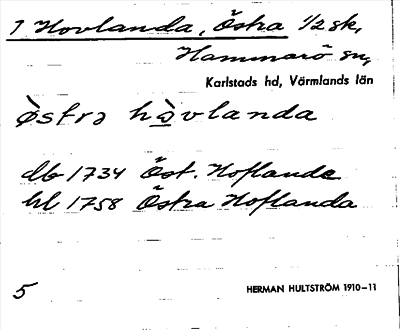 1 Hovlanda, Östra 1/2 sk,
Hammarö sn,
Karlstads hd, Värmlands län
òstrə hò̲vlanda
db 1734 Öst. Hoflande
hl 1758 Östra Hoflanda
5 HERMAN HULTSTRÖM 1910–11